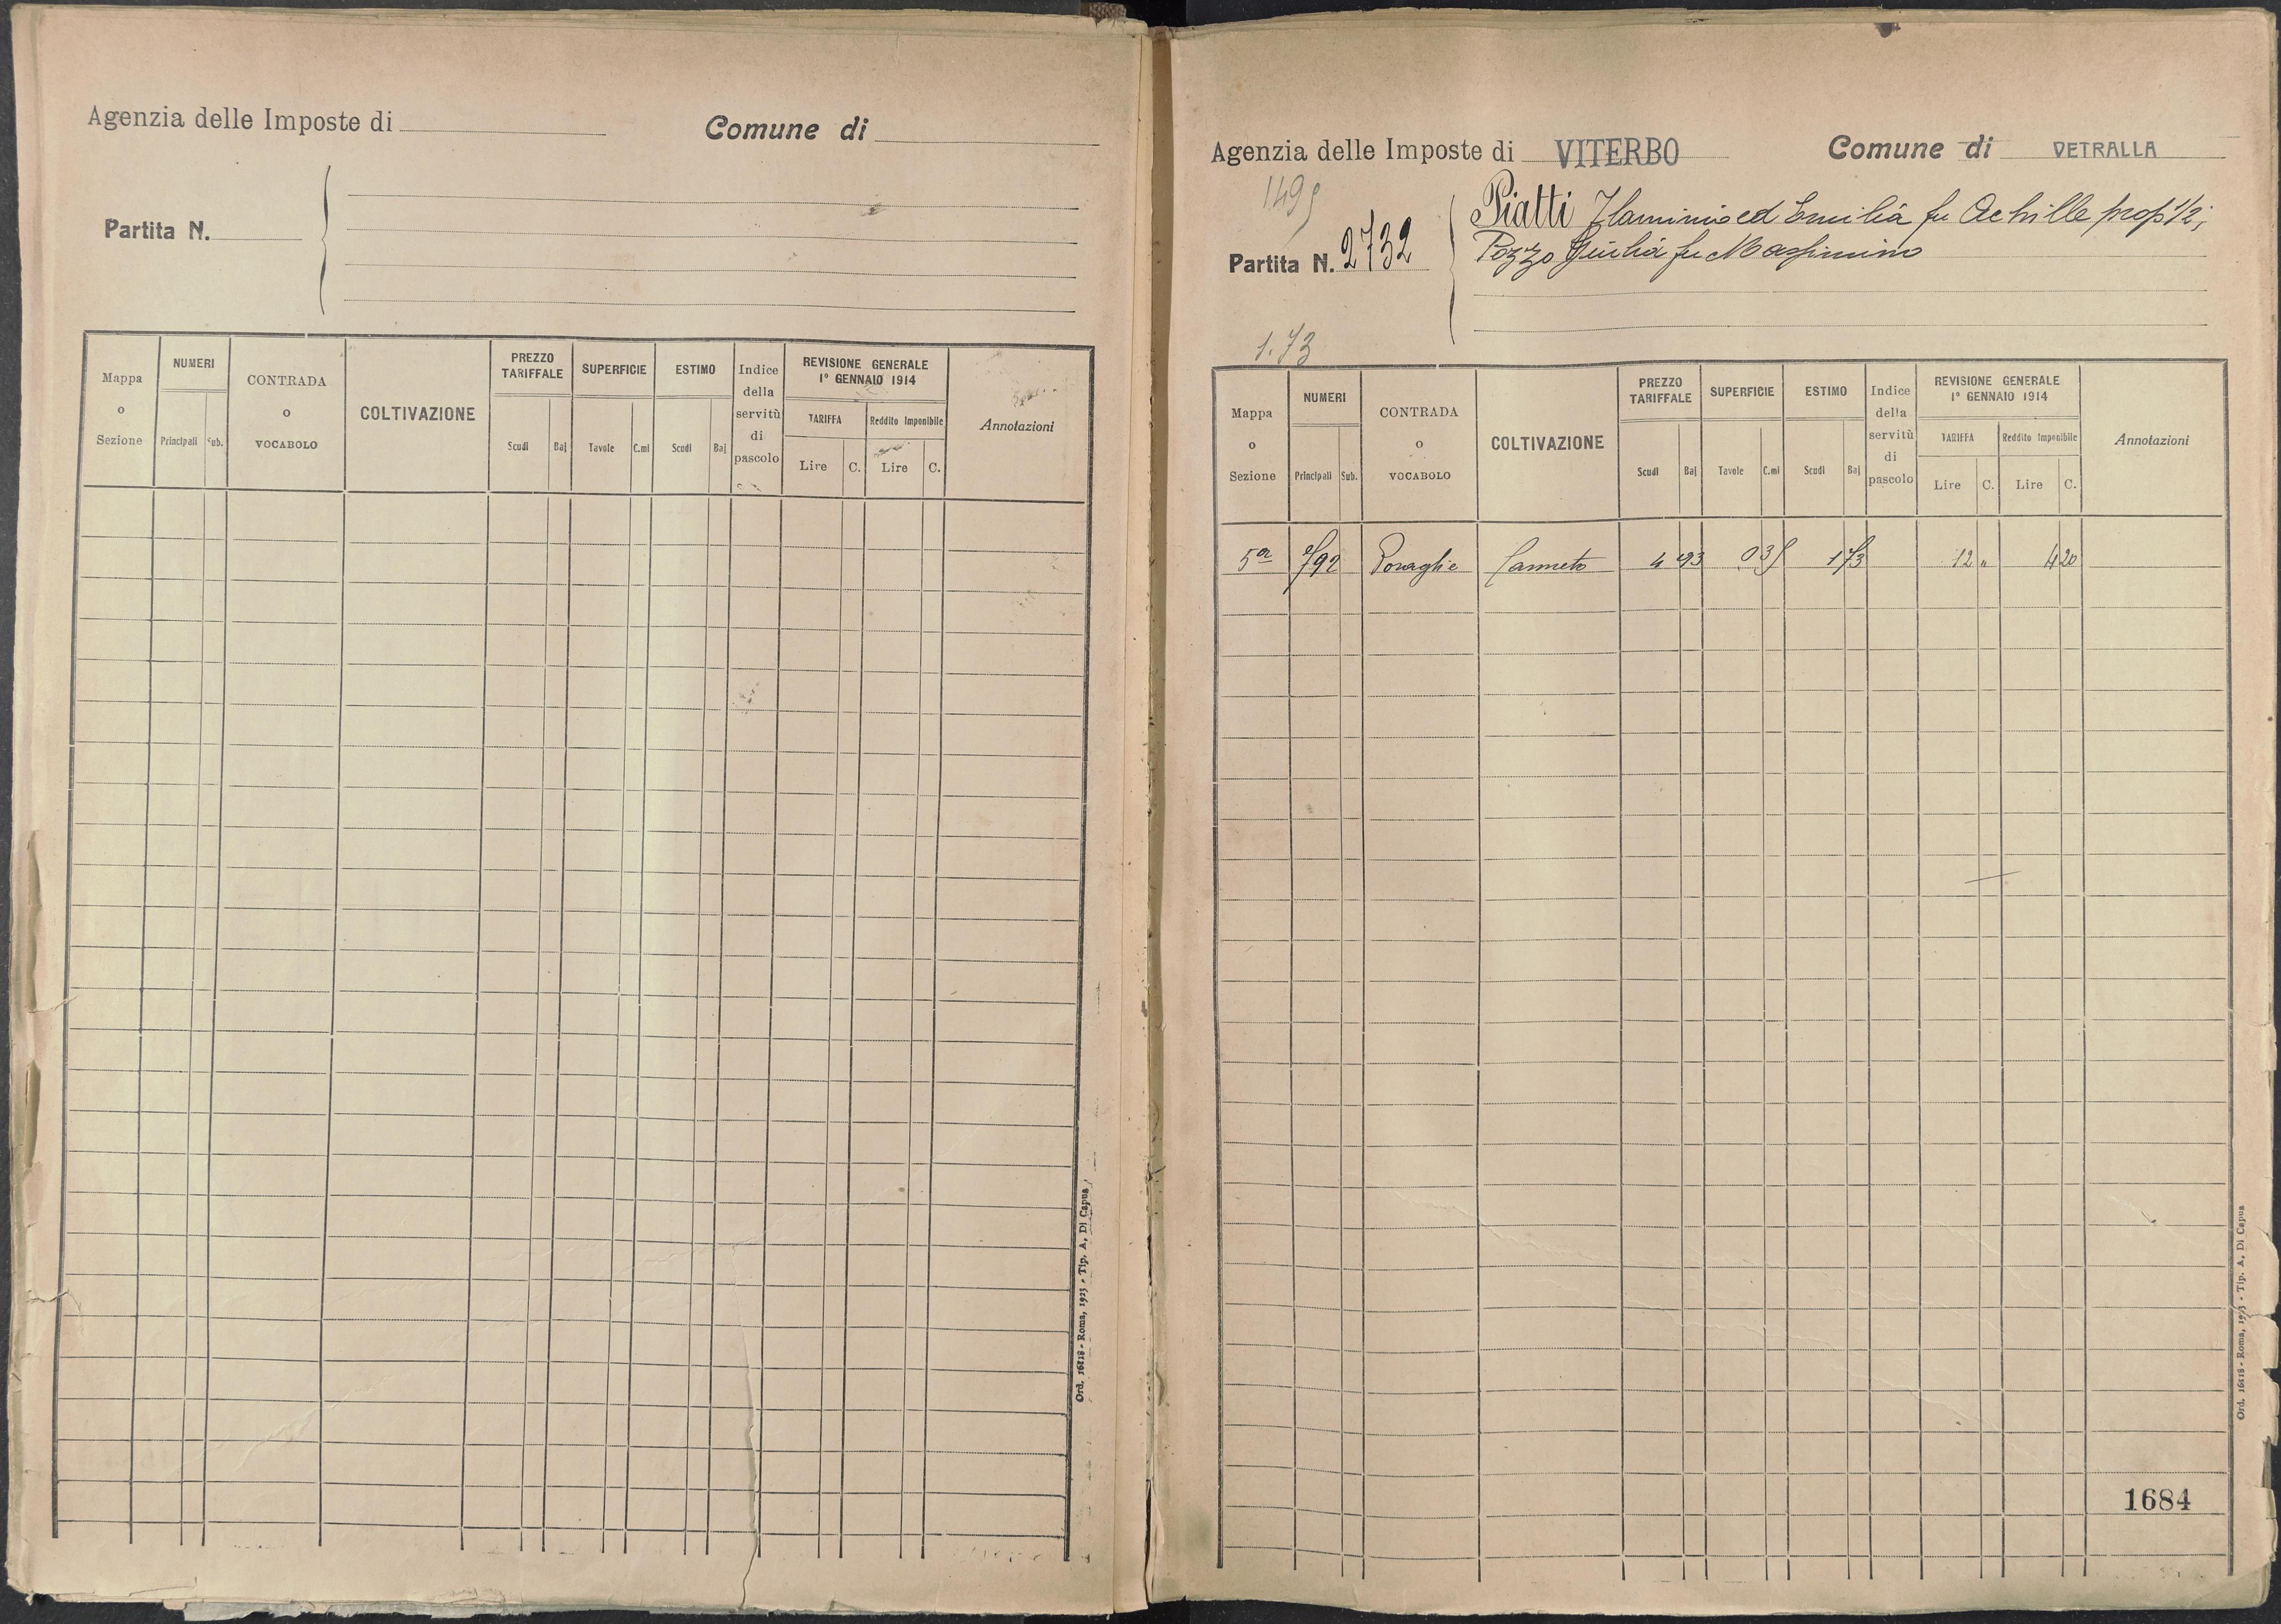 Agenzia delle Imposte di
Comune di
Partita N.
Mappa o Sezione
NUMERI
Principali
Sub.
CONTRADA o VOCABOLO
COLTIVAZIONE
PREZZO TARIFFALE
Scudi
Baj
SUPERFICIE
Tavole
C.mi
ESTIMO
Scudi
Baj
Indice della servitù di pascolo
REVISIONE GENERALE
1º GENNAIO 1914
TARIFFA
Lire
C.
Reddito Imponibile
Lire
C.
Annotazioni
Ord. 16218 - Roma, 1923 - Tip. A. Di Capua
Agenzia delle Imposte di VITERBO
Comune di VETRALLA
Partita N. 2732
Piatti Flaminio ed Emilia fu Achille prop 1/2;
Pozzo Giulia fu Massimino
1.73
Mappa o Sezione
NUMERI
Principali
Sub.
CONTRADA o VOCABOLO
COLTIVAZIONE
PREZZO TARIFFALE
Scudi
Baj
SUPERFICIE
Tavole
C.mi
ESTIMO
Scudi
Baj
Indice della servitù di pascolo
REVISIONE GENERALE
1º GENNAIO 1914
TARIFFA
Lire
C.
Reddito Imponibile
Lire
C.
Annotazioni
5a Canneto 4 93 0 35 1 73 12 " 4 20
1684
Tip. A. Di Capua